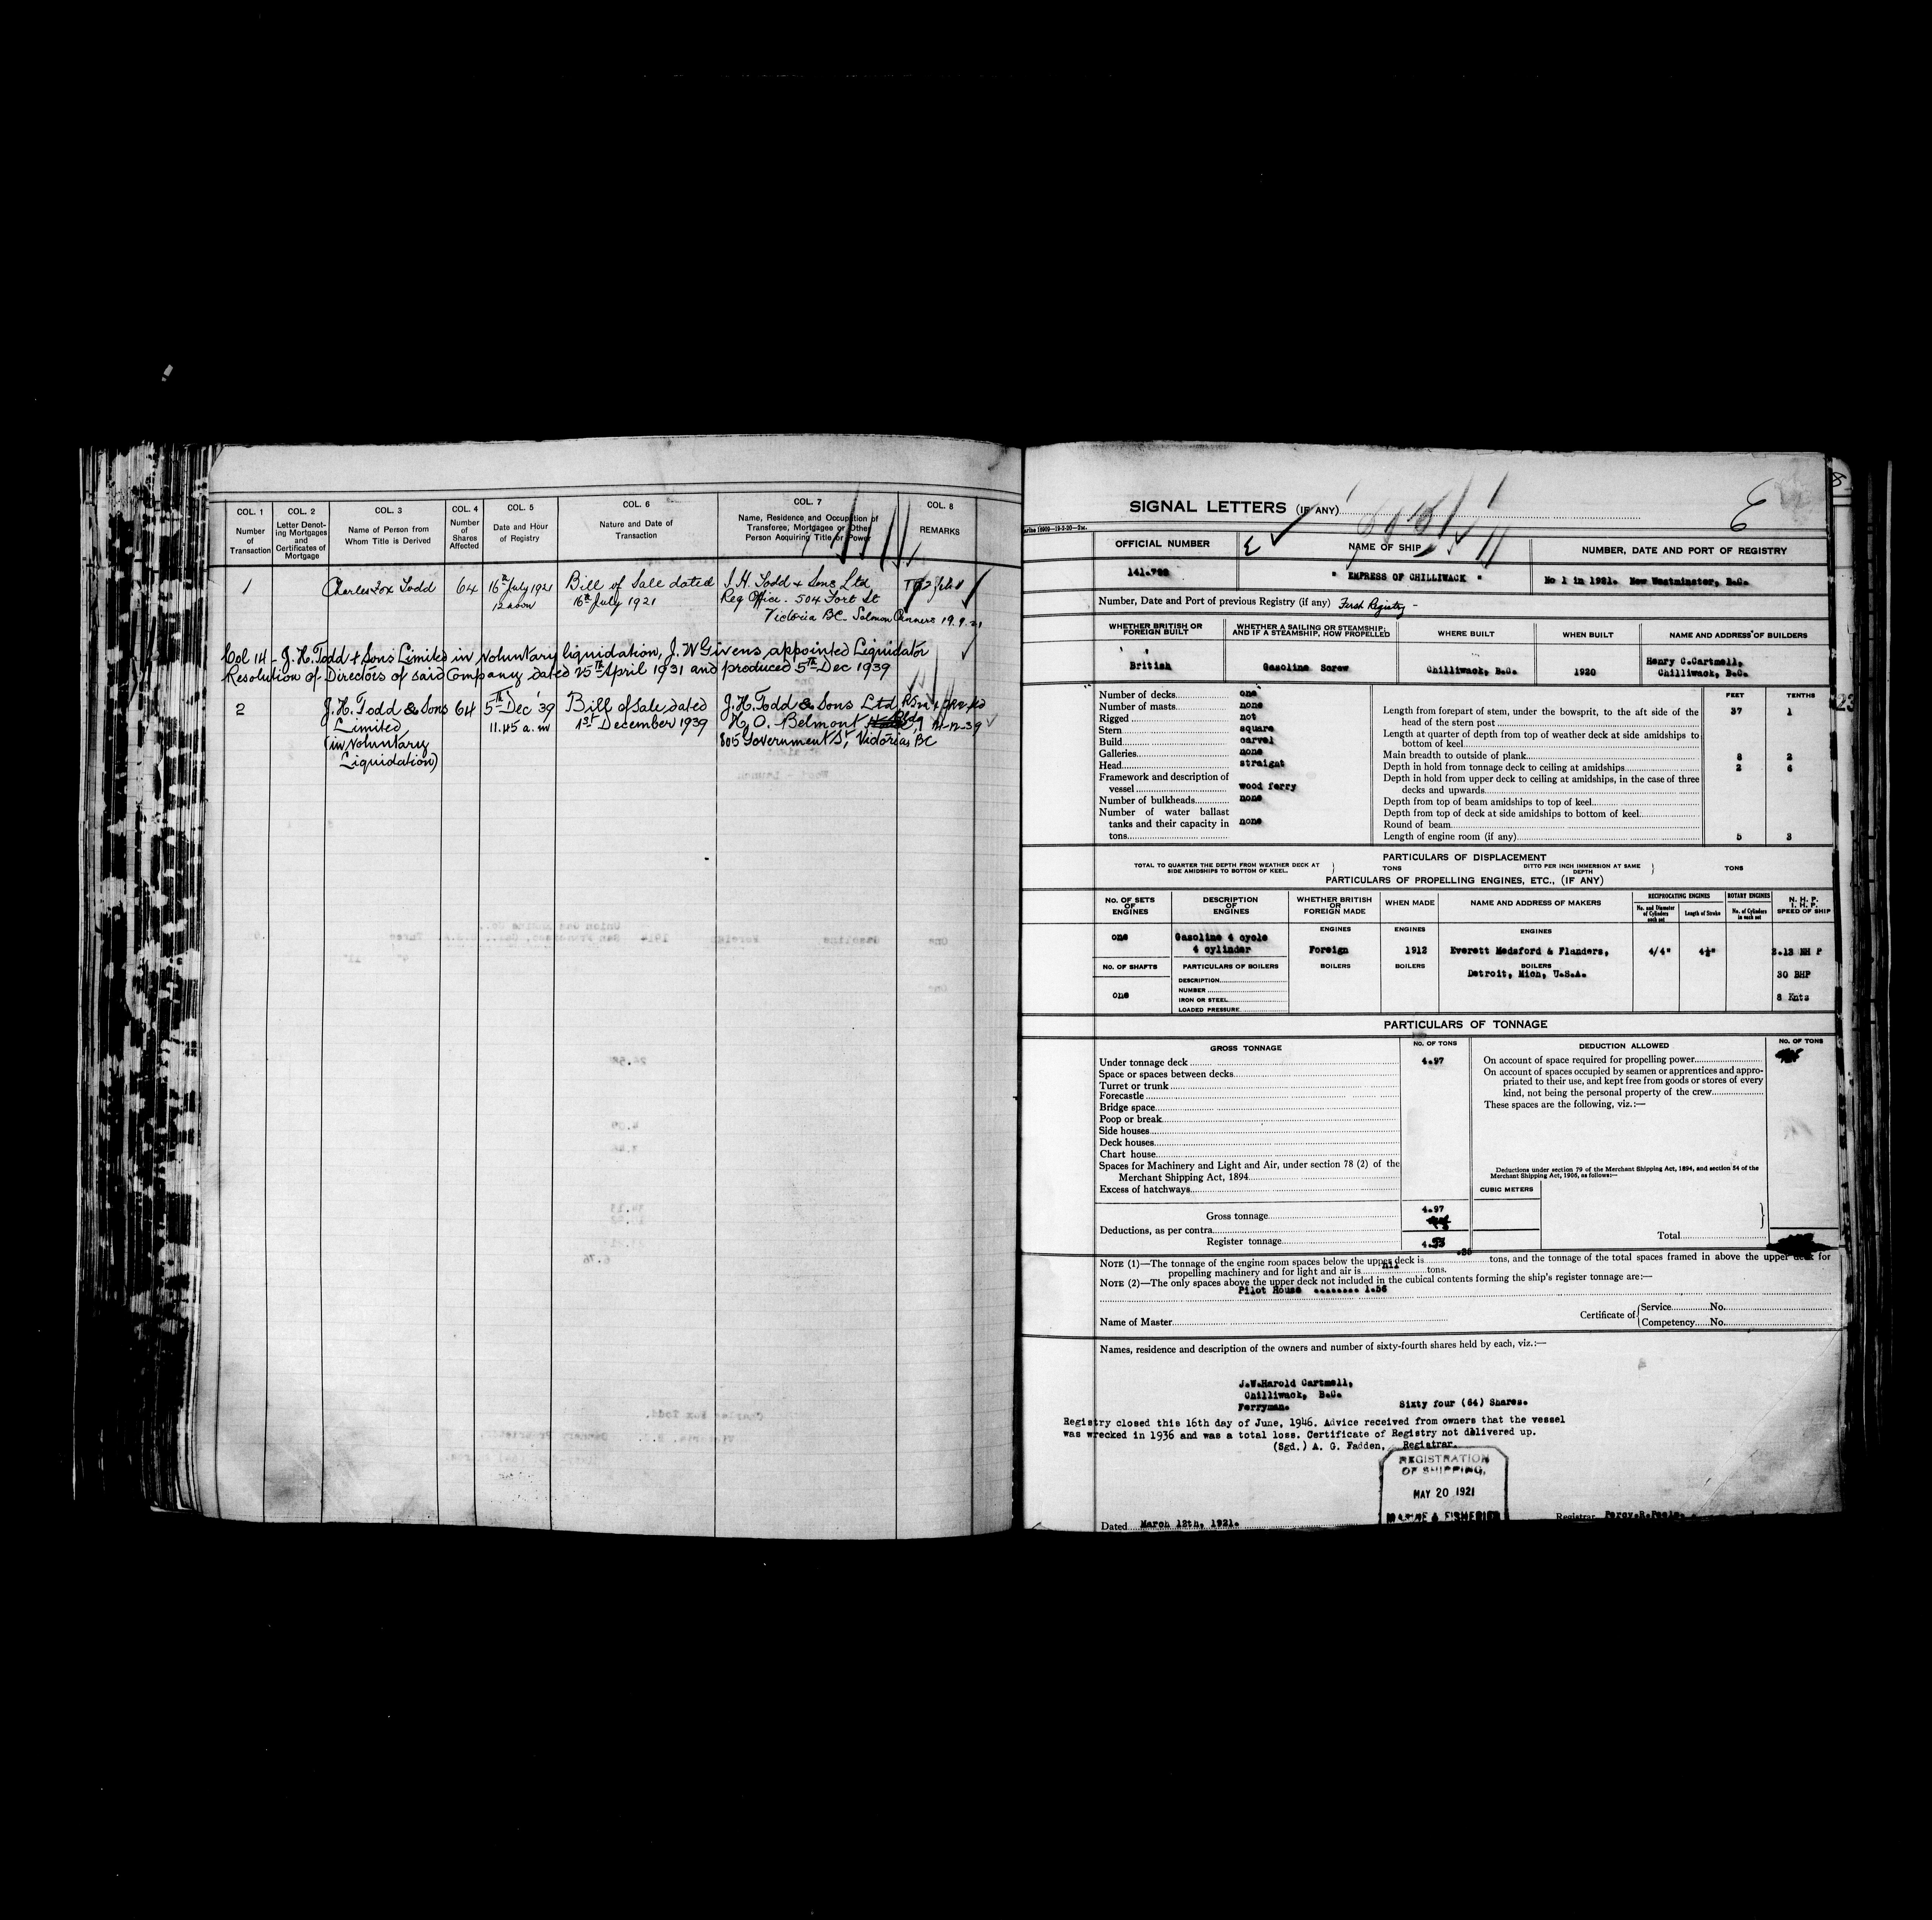 COL. 1 COL. 2 COL. 3 COL. 4 COL. 5 COL. 6 COL. 7 COL. 8
Number of Transaction
Letter Denoting Mortgages and Certificates of Mortgage
Name of Person from Whom Title is Derived
Number of Shares Affected
Date and Hour of Registry
Nature and Date of Transaction
Name, Residence and Occupation of Transferee, Mortgagee or Other Person Acquiring Title or Power
REMARKS
1 Charles Fox Todd 64 16th July 1921 Bill of Sale dated J. H. Todd + Sons Ltd
12 noon 16th July 1921 Reg Office - 504 Fort St
Victoria BC - Salmon Canners 19.9.21
Col 14 - J. H. Todd + Sons Limited in voluntary liquidation, J. W Givens appointed Liquidator
Resolution of Directors of said Company dated 25th April 1931 and produced 5th Dec 1939
2 J. H. Todd & Sons 64 5th Dec '39 Bill of Sale dated J. H. Todd & Sons Ltd
Limited 11.45 a.m 1st December 1939 H. O. Belmont Bldg 21-12-39
(in voluntary 805 Government St, Victoria BC
Liquidation)
SIGNAL LETTERS (IF ANY)
E
arine 16909—19-3-20—2M.
OFFICIAL NUMBER NAME OF SHIP NUMBER, DATE AND PORT OF REGISTRY
" EMPRESS OF CHILLIWACK " No 1 in 1921. New Westminster, B.C.
Number, Date and Port of previous Registry (if any) First Registry -
WHETHER BRITISH OR FOREIGN BUILT
WHETHER A SAILING OR STEAMSHIP; AND IF A STEAMSHIP, HOW PROPELLED
WHERE BUILT
WHEN BUILT
NAME AND ADDRESS OF BUILDERS
British Gasoline Screw Chilliwack, B.C. 1920 Henry C.Cartmell,
Chilliwack, B.C.
Number of decks one
Number of masts none
Rigged not
Stern square
Build carvel
Galleries none
Head straight
Framework and description of
vessel wood ferry
Number of bulkheads none
Number of water ballast
tanks and their capacity in none
tons
FEET TENTHS
Length from forepart of stem, under the bowsprit, to the aft side of the 37 1
head of the stern post
Length at quarter of depth from top of weather deck at side amidships to
bottom of keel
Main breadth to outside of plank 8 2
Depth in hold from tonnage deck to ceiling at amidships 2 6
Depth in hold from upper deck to ceiling at amidships, in the case of three
decks and upwards
Depth from top of beam amidships to top of keel
Depth from top of deck at side amidships to bottom of keel
Round of beam
Length of engine room (if any) 5 3
PARTICULARS OF DISPLACEMENT
TOTAL TO QUARTER THE DEPTH FROM WEATHER DECK AT SIDE AMIDSHIPS TO BOTTOM OF KEEL. TONS DITTO PER INCH IMMERSION AT SAME DEPTH TONS
PARTICULARS OF PROPELLING ENGINES, ETC., (IF ANY)
NO. OF SETS OF ENGINES
DESCRIPTION OF ENGINES
WHETHER BRITISH OR FOREIGN MADE
WHEN MADE
NAME AND ADDRESS OF MAKERS
RECIPROCATING ENGINES
No. and Diameter of Cylinders each set
Length of Stroke
ROTARY ENGINES
No. of Cylinders in each set
N. H. P.
I. H. P.
SPEED OF SHIP
ENGINES ENGINES ENGINES
one Gasoline 4 cycle
4 cylinder Foreign 1912 Everett Medsford & Flanders, 4/4" 4½" 2.13 NH P
NO. OF SHAFTS PARTICULARS OF BOILERS BOILERS BOILERS BOILERS
Detroit, Mich, U.S.A. 30 BHP
one DESCRIPTION
NUMBER
IRON OR STEEL
LOADED PRESSURE
8 Knts
PARTICULARS OF TONNAGE
GROSS TONNAGE NO. OF TONS DEDUCTION ALLOWED NO. OF TONS
Under tonnage deck 4.97
Space or spaces between decks
Turret or trunk
Forecastle
Bridge space
Poop or break
Side houses
Deck houses
Chart house
Spaces for Machinery and Light and Air, under section 78 (2) of the
Merchant Shipping Act, 1894
Excess of hatchways
Gross tonnage 4.97
Deductions, as per contra
Register tonnage
On account of space required for propelling power
On account of spaces occupied by seamen or apprentices and appro-
priated to their use, and kept free from goods or stores of every
kind, not being the personal property of the crew
These spaces are the following, viz.:—
Deductions under section 79 of the Merchant Shipping Act, 1894, and section 54 of the
Merchant Shipping Act, 1906, as follows:—
CUBIC METERS
Total
NOTE (1)—The tonnage of the engine room spaces below the upper deck is tons, and the tonnage of the total spaces framed in above the upper deck for
propelling machinery and for light and air is nil tons.
NOTE (2)—The only spaces above the upper deck not included in the cubical contents forming the ship's register tonnage are:—
Pilot House ........ 1.56
Name of Master
Certificate of Service No.
Competency No.
Names, residence and description of the owners and number of sixty-fourth shares held by each, viz.:—
J.W.Harold Cartmell,
Chilliwack, B.C.
Ferryman. Sixty four (64) Shares.
Registry closed this 16th day of June, 1946. Advice received from owners that the vessel
was wrecked in 1936 and was a total loss. Certificate of Registry not delivered up.
(Sgd.) A. G. Fadden, Registrar.
REGISTRATION
OF SHIPPING,
MAY 20 1921
MARINE & FISHERIES
Dated March 12th, 1921. Registrar